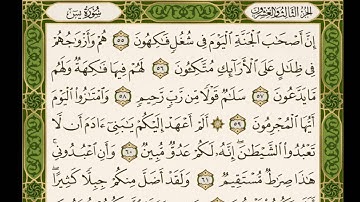 الجزء الثالث والعشرون
سورة يس
إِنَّ أَصْحَٰبَ ٱلْجَنَّةِ ٱلْيَوْمَ فِى شُغُلٍ فَٰكِهُونَ ٥٥ هُمْ وَأَزْوَٰجُهُمْ
فِى ظِلَٰلٍ عَلَى ٱلْأَرَآئِكِ مُتَّكِـُٔونَ ٥٦ لَهُمْ فِيهَا فَٰكِهَةٌ وَلَهُم
مَّا يَدَّعُونَ ٥٧ سَلَٰمٌ قَوْلًا مِّن رَّبٍّ رَّحِيمٍ ٥٨ وَٱمْتَٰزُوا۟ ٱلْيَوْمَ
أَيُّهَا ٱلْمُجْرِمُونَ ٥٩ ۞ أَلَمْ أَعْهَدْ إِلَيْكُمْ يَٰبَنِىٓ ءَادَمَ أَن لَّا
تَعْبُدُوا۟ ٱلشَّيْطَٰنَ ۖ إِنَّهُۥ لَكُمْ عَدُوٌّ مُّبِينٌ ٦٠ وَأَنِ ٱعْبُدُونِى ۚ
هَٰذَا صِرَٰطٌ مُّسْتَقِيمٌ ٦١ وَلَقَدْ أَضَلَّ مِنكُمْ جِبِلًّا كَثِيرًا ۖ